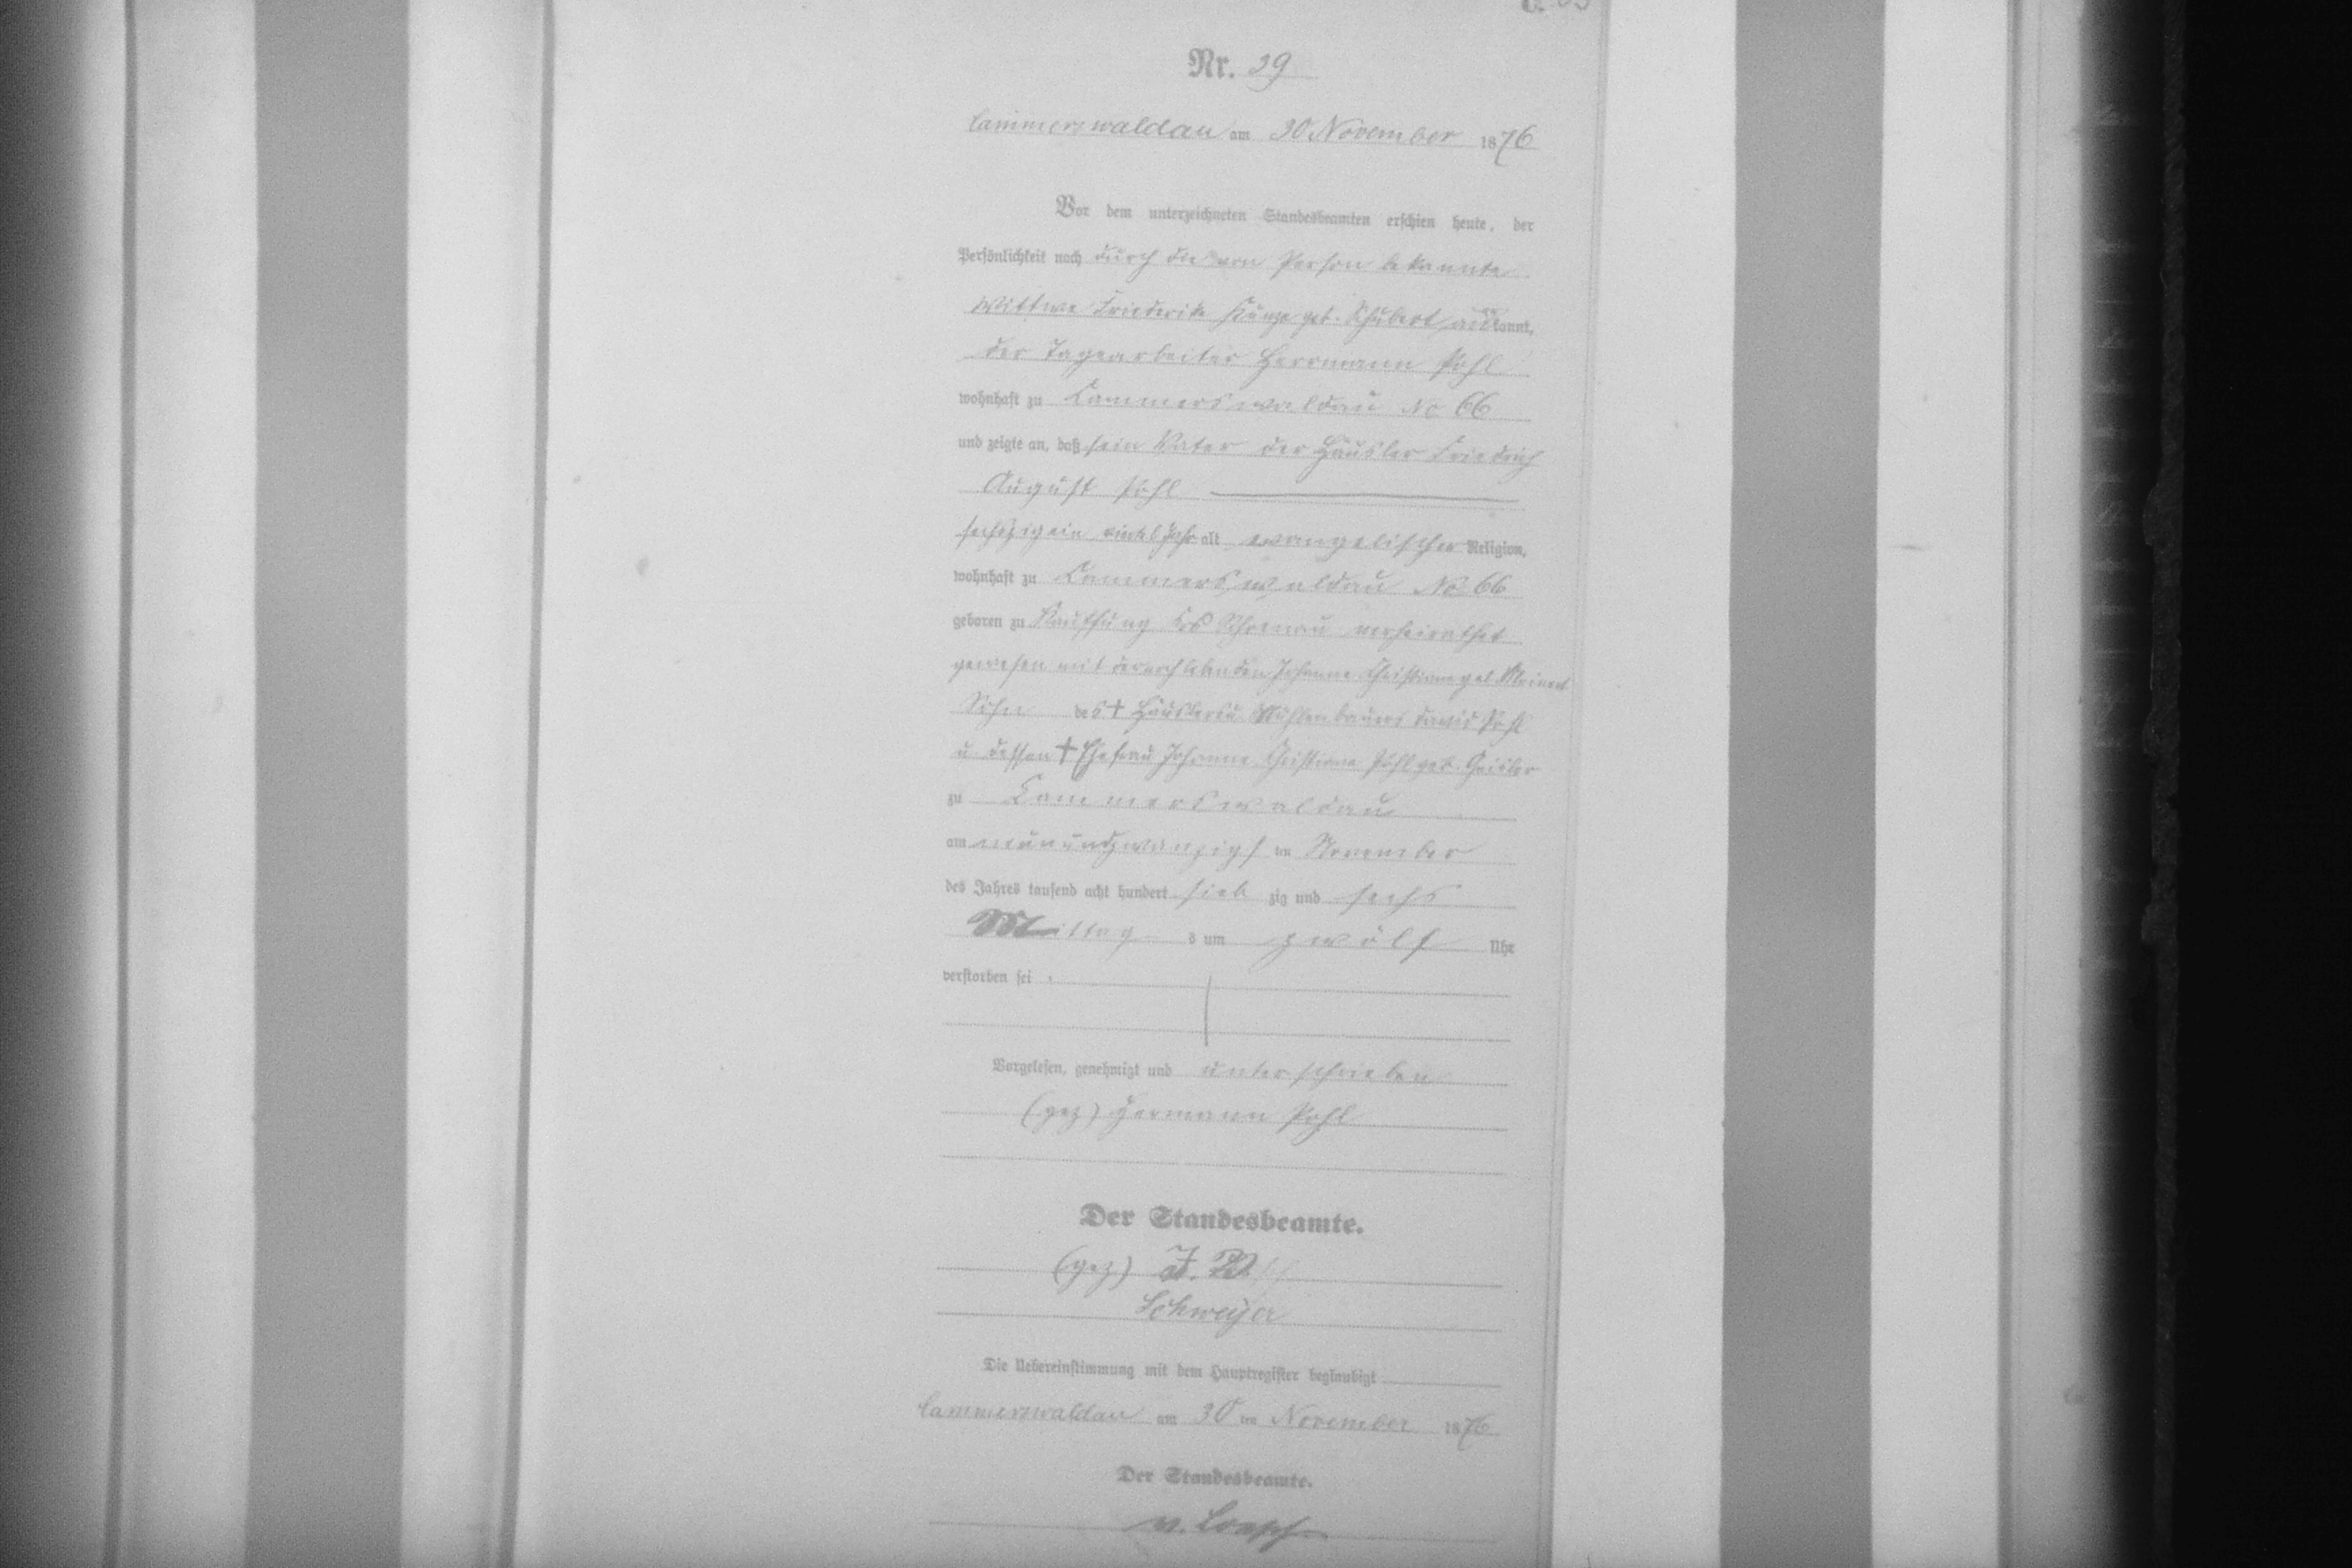 Nr. 39
Cammerswaldau am 30 November 1876
Vor dem unterzeichneten Standesbeamten erschien heute, der
Persönlichkeit nach durch die von Person bekannte
Wittwe Friederike Kunze geb. Schubert kannt,
der Tagearbeiter Herrmann Pohl
wohnhaft zu Cammerswaldau No 66
und zeigte an, daß sein Vater der Häusler Friedrich
August Pohl
sechszig ein viertel Jahr alt evangelischer Religion,
wohnhaft zu Cammerswaldau No 66
geboren zu Kauffung Krs Schönau verheirathet
gewesen mit der noch lebenden Johanne Christiane geb. Meinert
Sohn des † Häusler u. Mühlenbauers David Pohl
u. dessen † Ehefrau Johanne Christiane Pohl geb. Geisler
zu Cammerswaldau
am neunundzwanzigsten November
des Jahres tausend acht hundert siebzig und sechs
Mittags um zwölf Uhr
verstorben sei
Vorgelesen, genehmigt und unterschrieben
(gez) Hermann Pohl
Der Standesbeamte.
(gez) J. V.
Schweijer
Die Uebereinstimmung mit dem Hauptregister beglaubigt
Cammerswaldau am 30 ten November 1876
Der Standesbeamte.